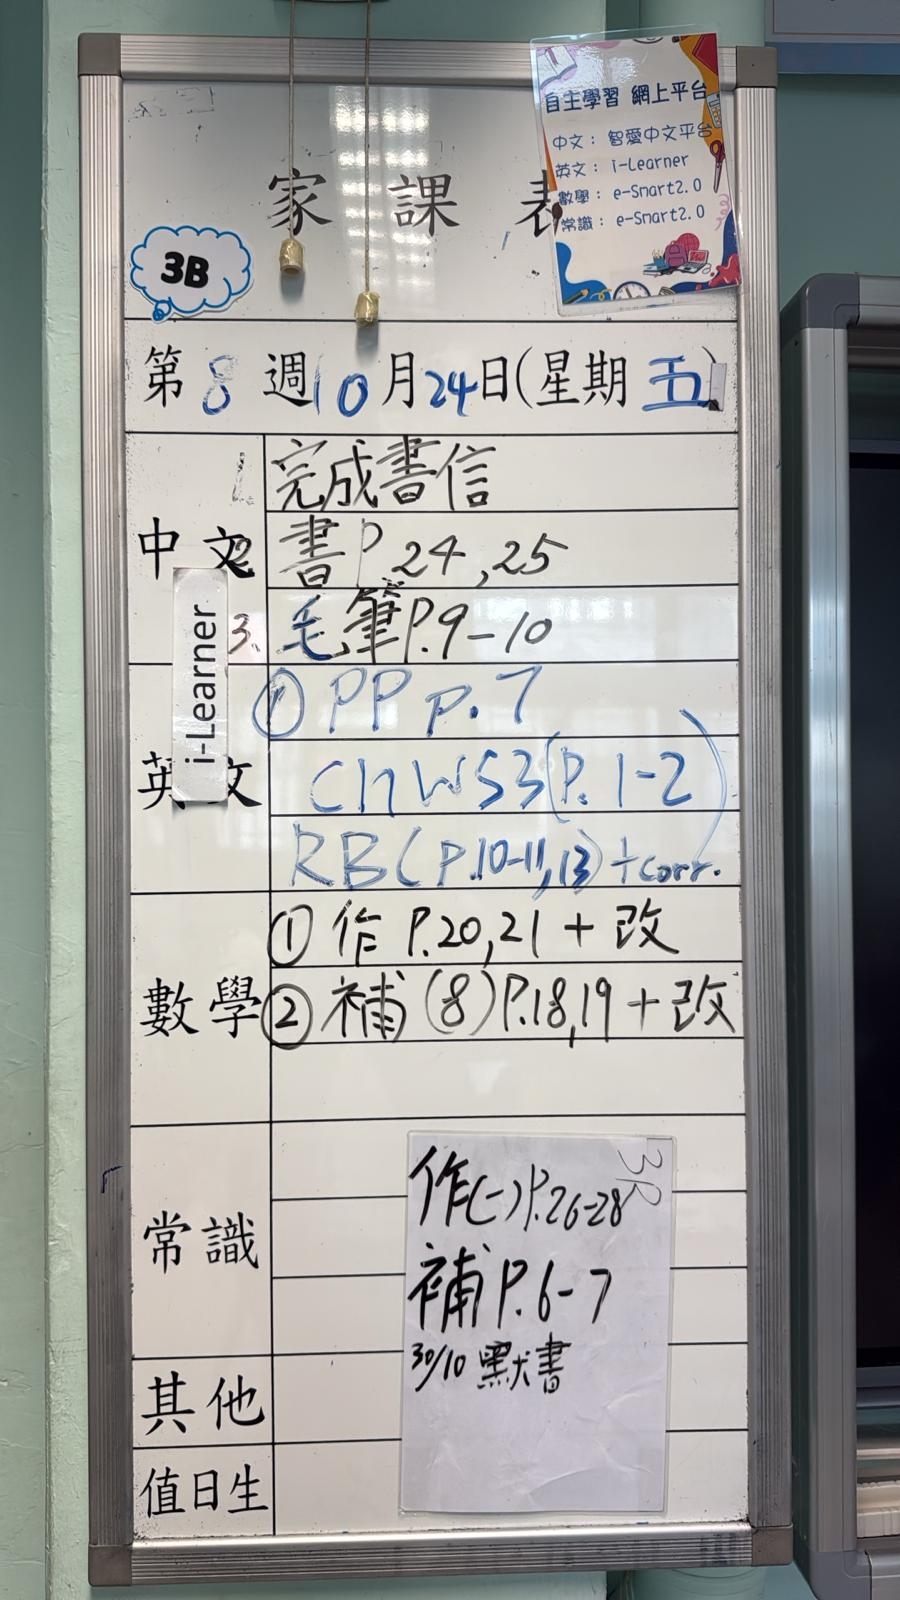 家課表
自主學習 網上平台
中文： 智愛中文平台
英文： i-Learner
數學： e-Smart2.0
常識： e-Smart2.0
3B
第8週10月24日(星期五)
中文
1. 完成書信
2. 書P 24,25
3. 毛筆P.9-10
i-Learner
英文
① PP p.7
Ch WS3(P.1-2)
RB(P.10-11,13)+corr.
數學
① 作 P.20,21 + 改
② 補(8)P.18,19 + 改
常識
作(一)P.26-28
補 P.6-7
30/10 默書
其他
值日生